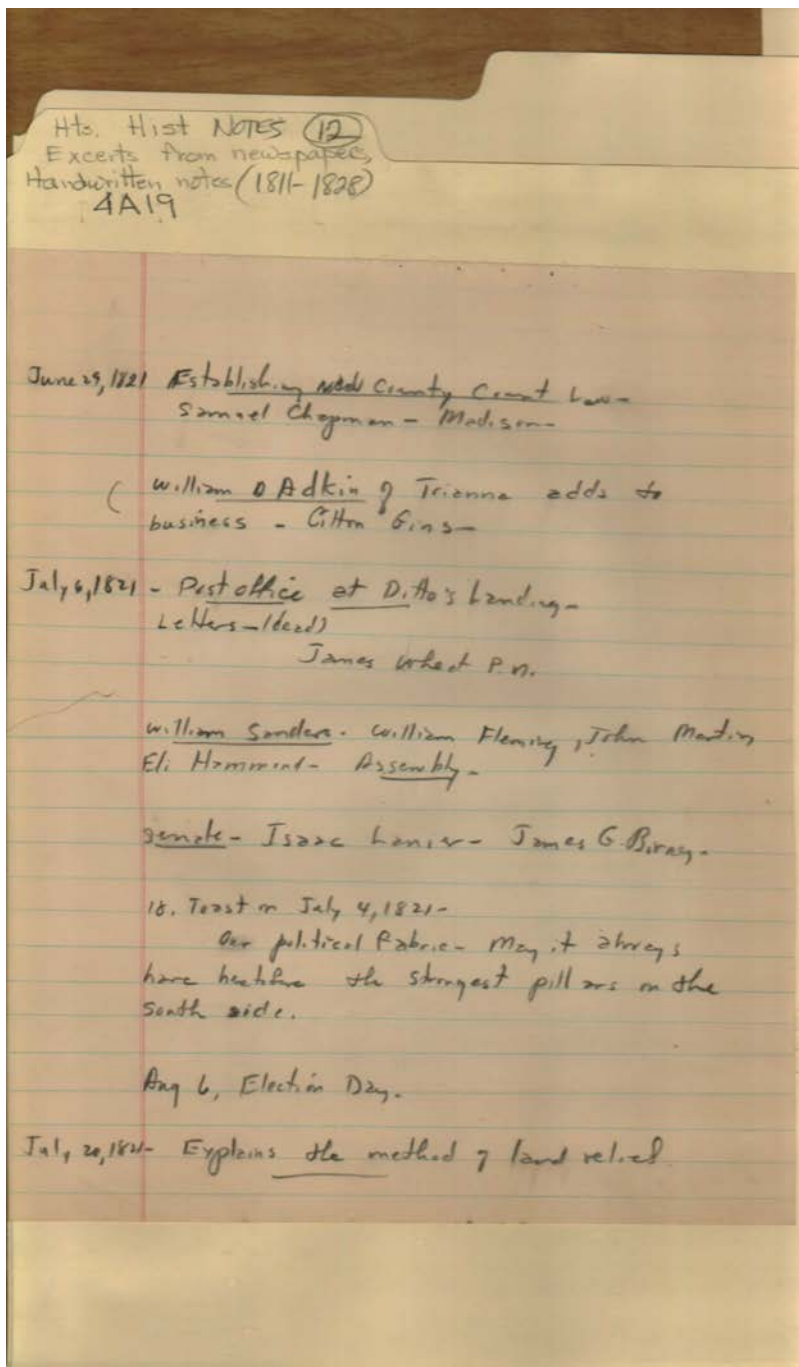 Hts. Hist NOTES (12)
Excerts from newspapers,
Handwritten notes (1811-1828)
4A19
June 29, 1821 Establishing County Court Law -
Samuel Chapman - Madison -
( William D Adkin of Trianna adds to
business - Cotton Gins -
July 6, 1821 - Post office at Ditto's Landing -
Letters - (dead)
James Wheat P.M.
William Sanders - William Fleming, John Martin
Eli Hammond - Assembly -
Senate - Isaac Lanier - James G. Birney -
18. Toast on July 4, 1821 -
Our political Fabric - May it always
have the strongest pillars on the
South side.
Aug 6, Election Day.
July 20, 1821 - Explains the method of land relief